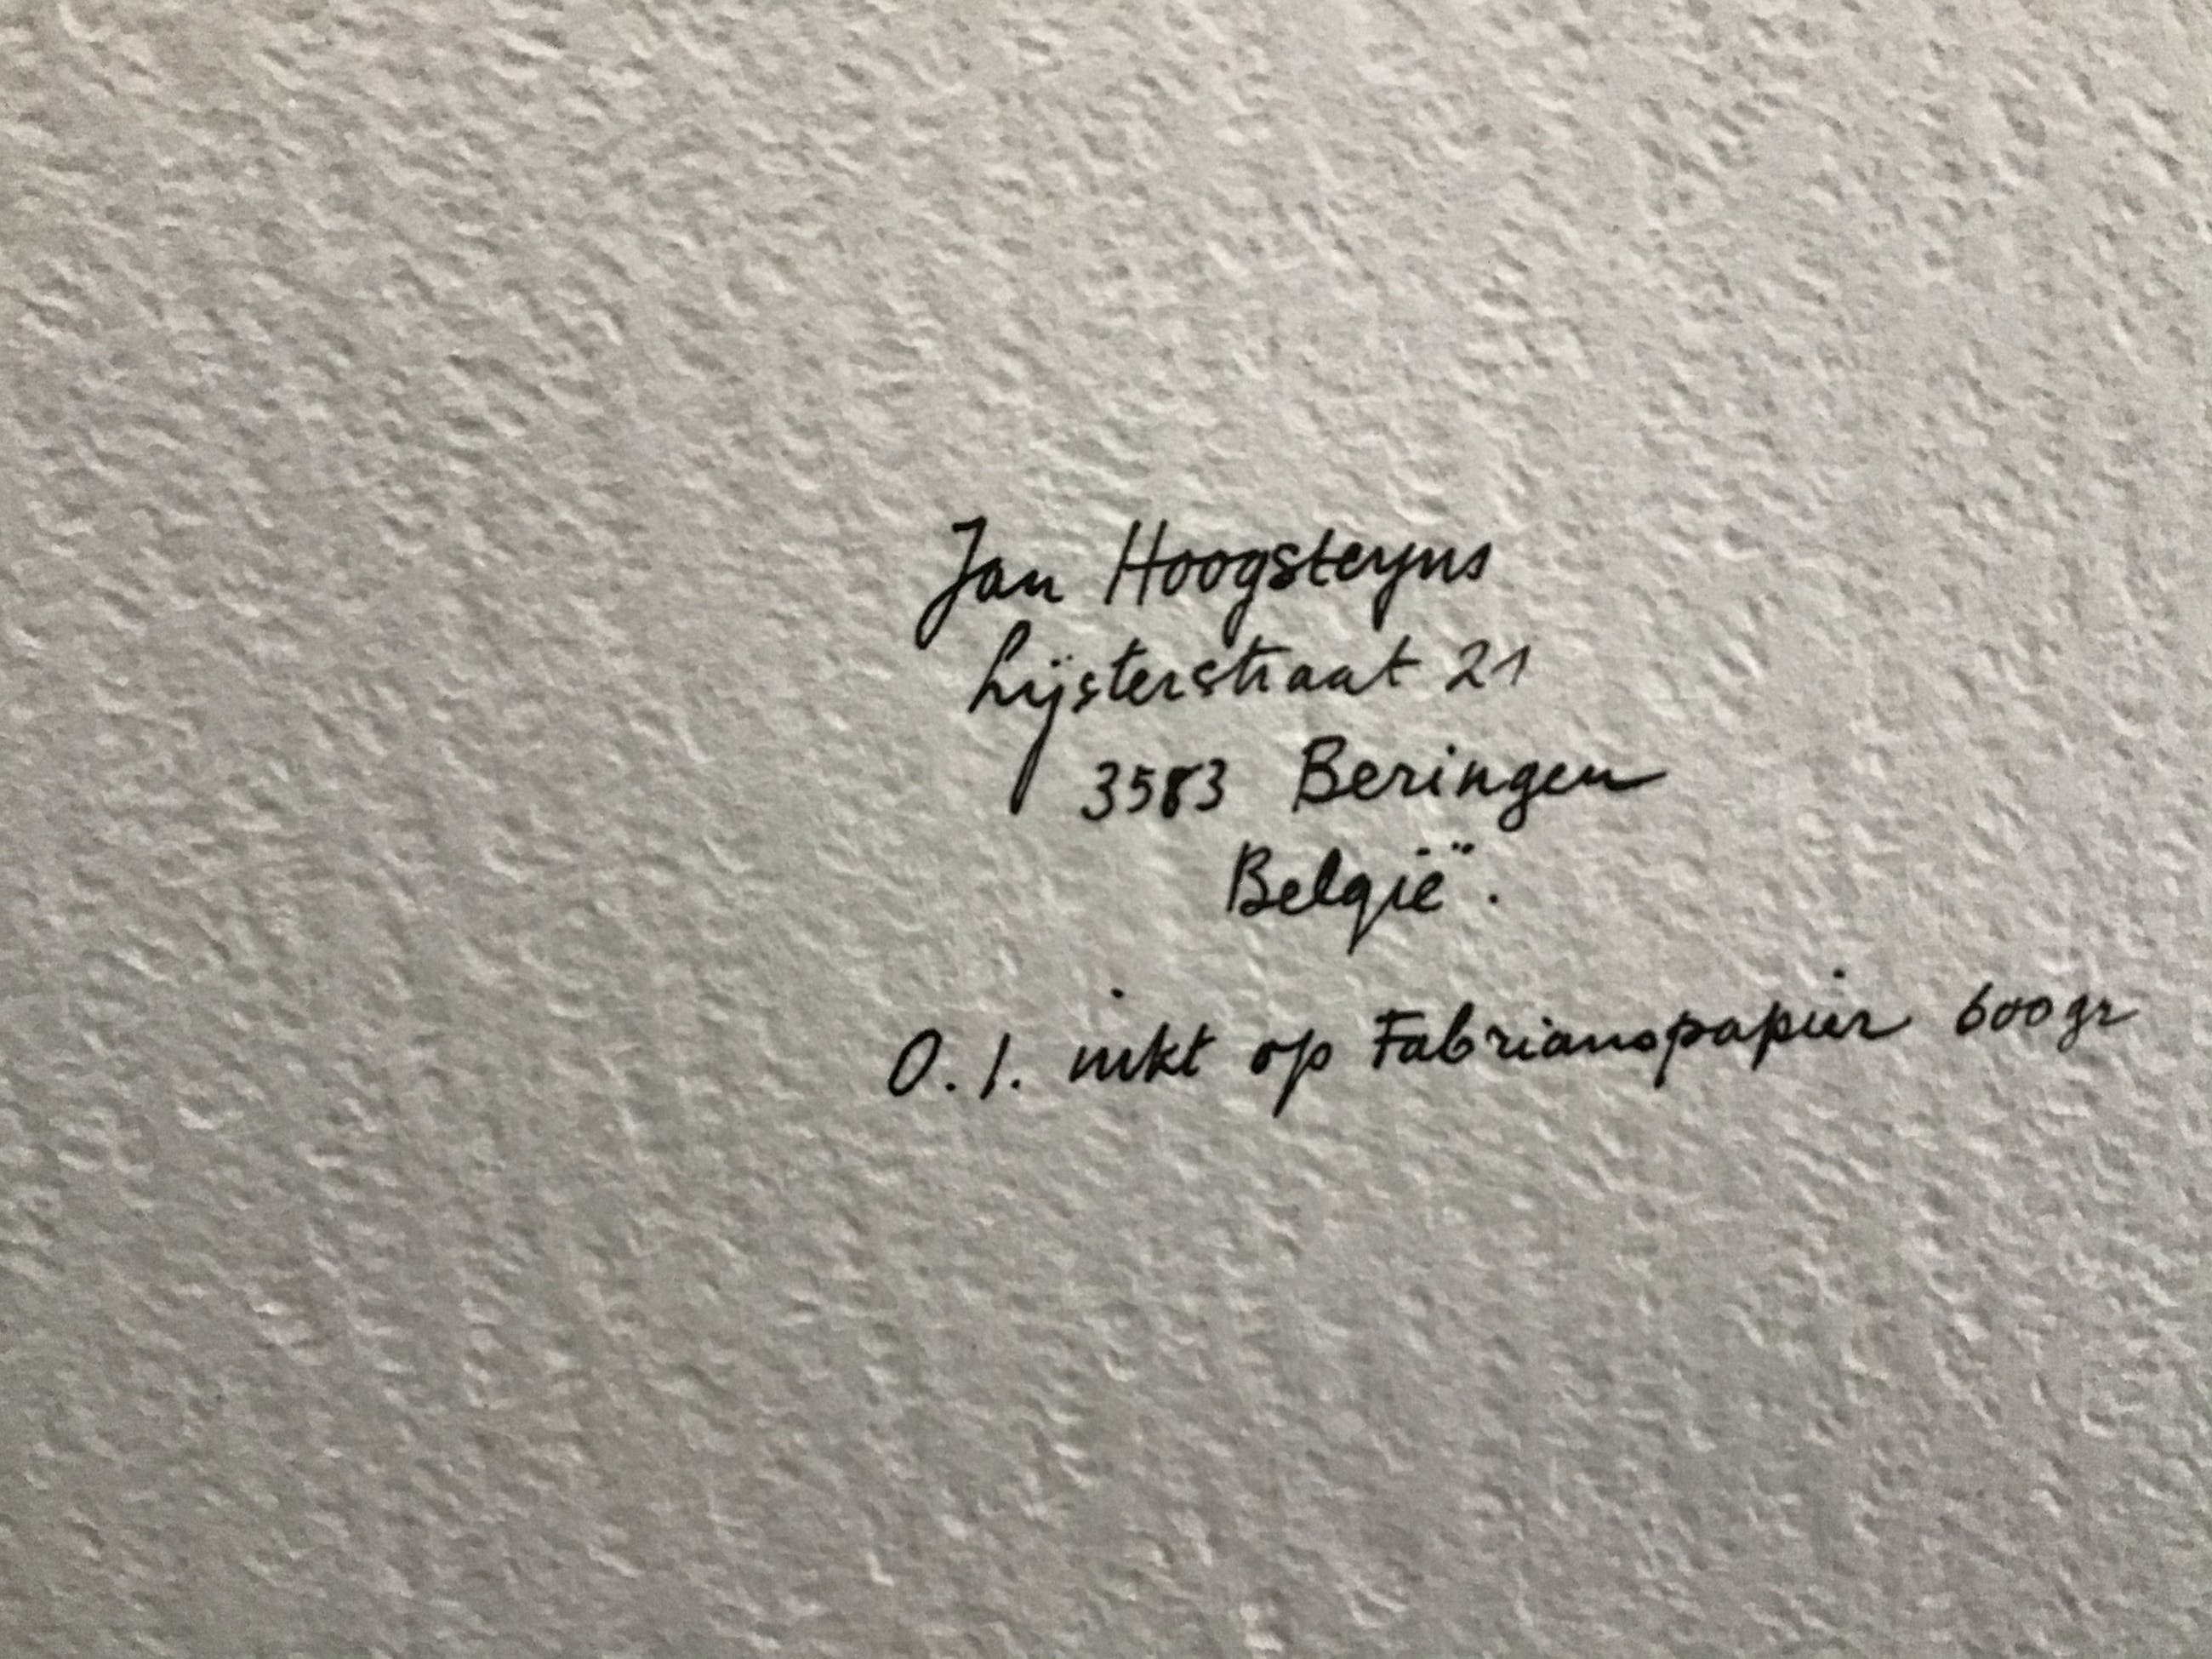 Jan Hoogsteyns
Lijsterstraat 21
3583 Beringen
België.
O.I. inkt op Fabrianopapier 600gr